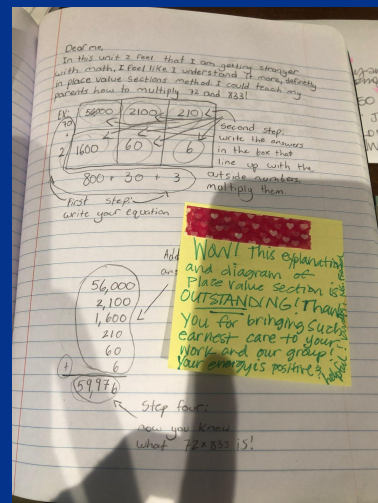 Dear me,
In this unit I feel that I am getting stronger
with math, I feel like I understand it more, definetly
in place value sections method. I could teach my
parents how to multiply 72 and 833!
EX:
70
56000 2100 210
+
2 1600 60 6
800 + 30 + 3
Second step:
write the answers
in the box that
line up with the
outside numbers,
multiply them.
First step:
write your equation
Add
56,000
2,100
1,600
210
60
+ 6
59,976
Step four:
now you know
what 72x833 is!
WOW! This explanation
and diagram of
Place value section is
OUTSTANDING! Thank
you for bringing such
earnest care to your
work and our group.
Your energy is positive &